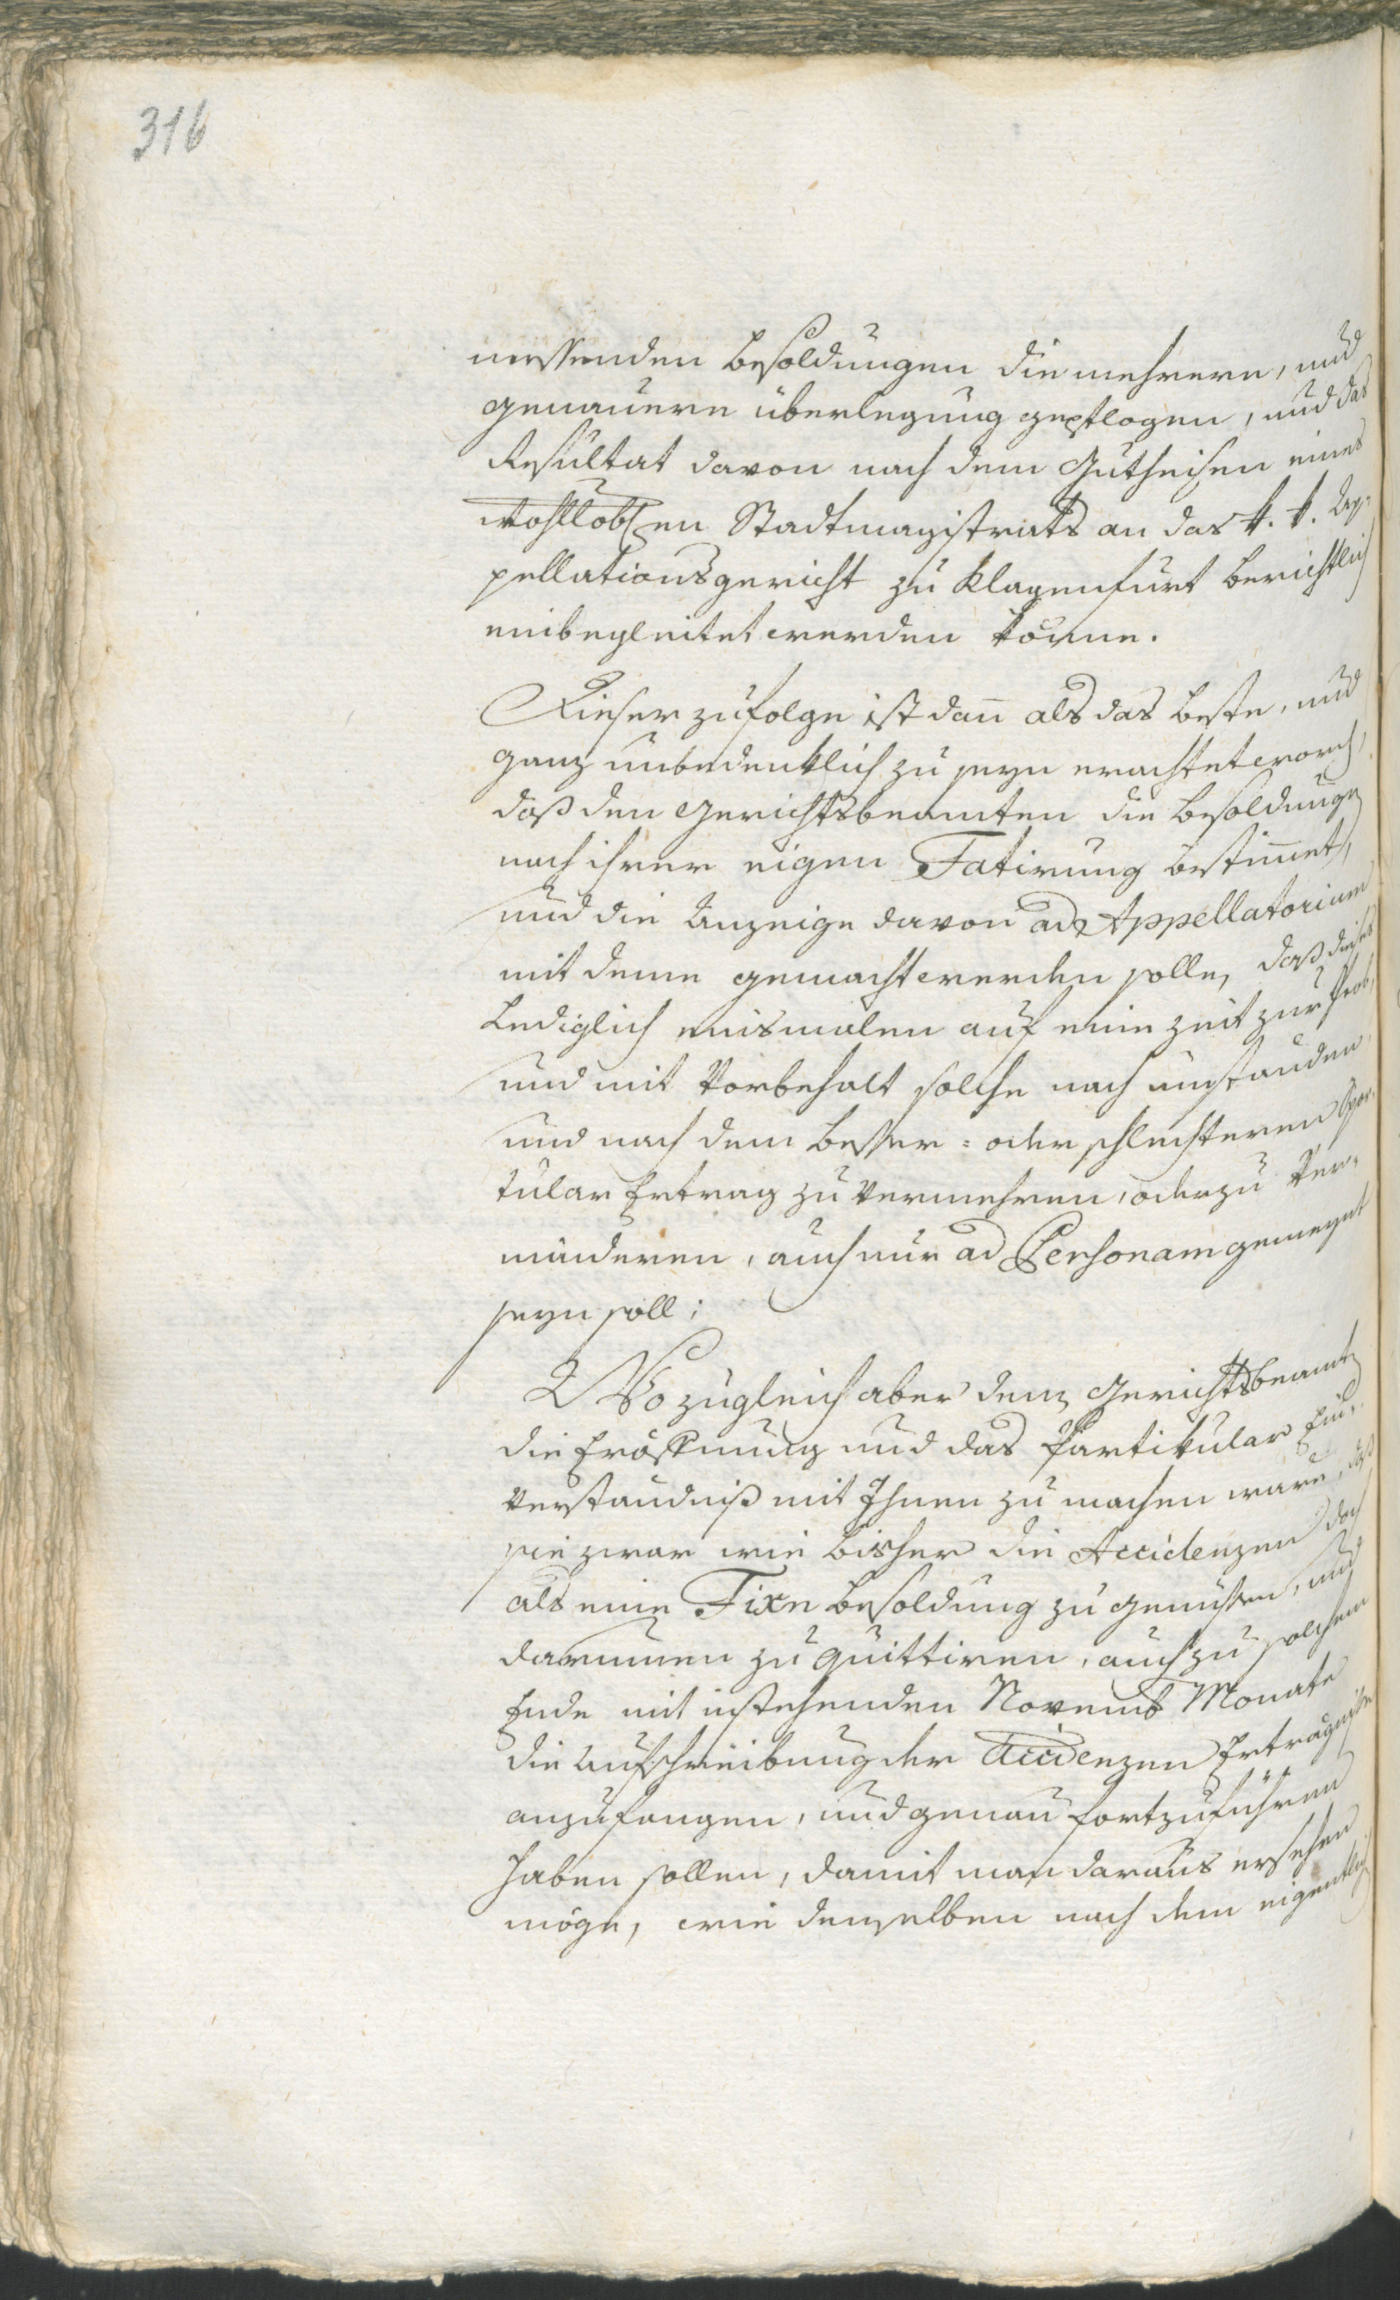 316
messenden Besoldungen die mehrere, und
genauere überlegung gepflogen, und das
Resultat davon nach dem Gutheisen eines
Wohllöblen Stadtmagistrats an das k. k. Ap¬
pellationsgericht zu Klagenfurt berichtlich
einbegleitet werden könne.
Dieser zufolge ist dan̄ als das beste, und
ganz unbedenklich zu seyn erachtet word,
daß den Gerichtsbeamten die Besoldungen
nach ihrer eigen Fatirung bestim̄et,
und die Anzeige davon ad Appellatorium
mit deme gemacht werden solle, daß dieses
Lediglich einsmalen auf eine Zeit zur Prob,
und mit Vorbehalt solche nach umständen
und nach dem besser= oder schlechteren Spor¬
tular Ertrag zu vermehren, oder zu Ver¬
minderen, auch nur ad Personam gemeynt
seyn soll;
Wo zugleich aber den Gerichtsbeamten
die Eröffnung und das Partikular Ein¬
verständniß mit Ihnen zu machen wäre, daß
sie zwar wie bisher die Accidenzen doch
als eine Fixe Besoldung zu genüßen, und
darumen zu quittiren, auch zu solchem
Ende mit instehenden Novemb Monate
die Aufschreibung der Accidenzen Erträgniße
anzufangen, und genau fortzuführen
haben sollen, damit man daraus ersehen
möge, wie denselben nach dem eigentlich